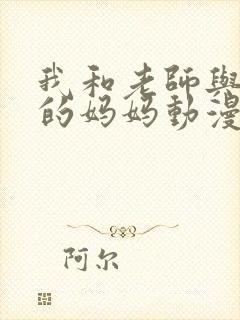 我和老師與
的妈妈動漫
阿尔